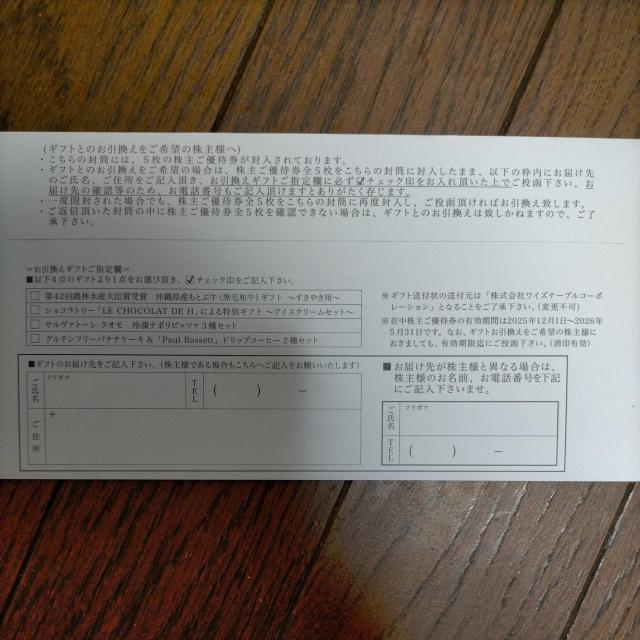 (ギフトとのお引換えをご希望の株主様へ)
・こちらの封筒には、5枚の株主ご優待券が封入されております。
・ギフトとのお引換えをご希望の場合は、株主ご優待券全5枚をこちらの封筒に封入したまま、以下の枠内にお届け先
のご氏名、ご住所をご記入頂き、お引換えギフトご指定欄に必ず☑チェック印をお入れ頂いた上でご投函下さい。お
届け先の確認等のため、お電話番号をご記入頂けますとありがたく存じます。
・一度開封された場合でも、株主ご優待券全5枚をこちらの封筒に再度封入し、ご投函頂ければお引換え致します。
・ご返信頂いた封筒の中に株主ご優待券全5枚を確認できない場合は、ギフトとのお引換えは致しかねますので、ご了
承下さい。
=お引換えギフトご指定欄=
■以下4点のギフトより1点をお選び頂き、☑チェック印をご記入下さい。
□ 第42回農林水産大臣賞受賞 沖縄県産もとぶ牛(黒毛和牛)ギフト 〜すきやき用〜
□ ショコラトリー「LE CHOCOLAT DE H」による特別ギフト 〜アイスクリームセット〜
□ サルヴァトーレ クオモ 冷凍ナポリピッツァ3種セット
□ グルテンフリーバナナケーキ&「Paul Bassett」ドリップコーヒー2種セット
※ギフト送付状の送付元は「株式会社ワイズテーブルコーポ
レーション」となることをご了承下さい。(変更不可)
※在中株主ご優待券の有効期間は2025年12月1日~2026年
5月31日です。なお、ギフトお引換えをご希望の株主様に
おきましても、有効期限迄にご投函下さい。(消印有効)
■ギフトのお届け先をご記入下さい。(株主様である場合もこちらへご記入をお願いいたします)
ご氏名
フリガナ
TEL
( ) −
ご住所
〒
■お届け先が株主様と異なる場合は、
株主様のお名前、お電話番号を下記
にご記入下さいませ。
ご氏名
フリガナ
TEL
( ) −